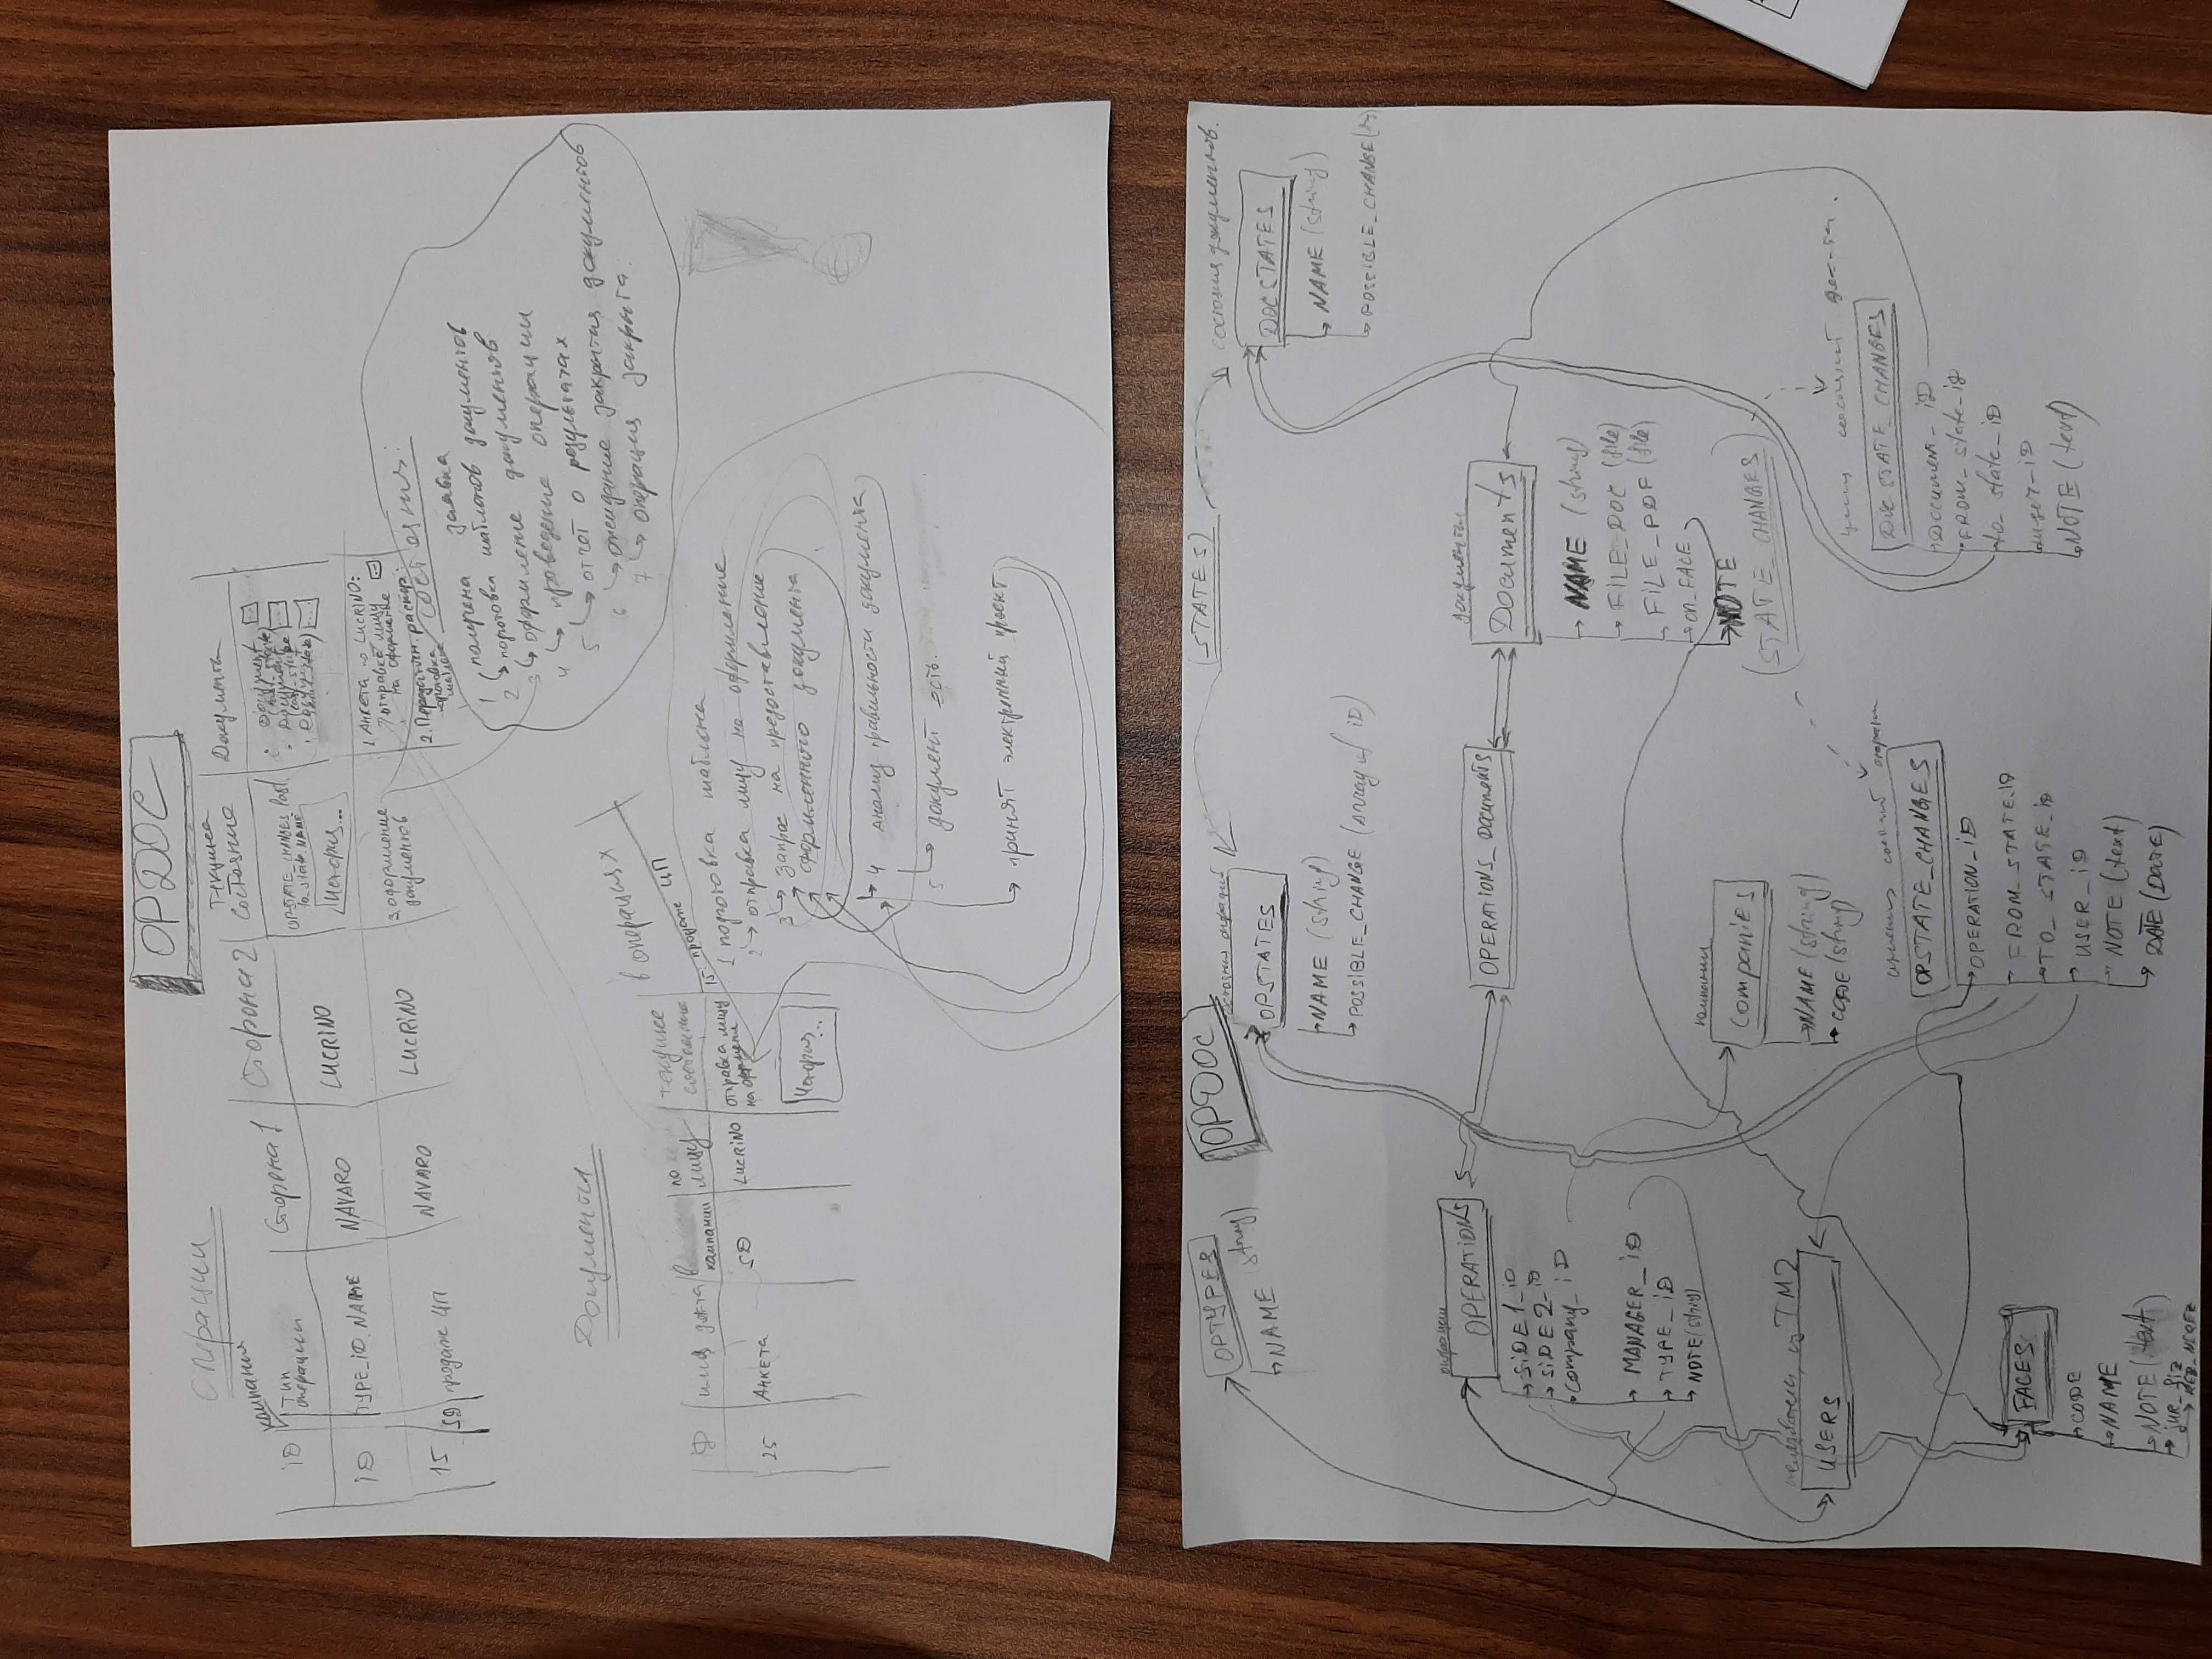 OPDOC
Операции
iD
компания
Тип операции
Сторона 1
Сторона 2
Текущее состояние
Документы
iD
TYPE_iD.NAME
NAVARO
LUCRINO
OPSTATE_CHANGES.last
to_state.NAME
История...
Document
(last_state)
Document
(last_state)
Document
15
SD
продаже ЦП
NAVARO
LUCRINO
3. оформление документов
1. Анкета по LUCRINO:
отправка лицу
на оформление
2. Передаточн. распор.:
подготовка
шаблона
состояния:
1 получена заявка
2 подготовка шаблонов документов
3 оформление документов
4 проведение операции
5 отчет о результатах
6 ожидание закрытия документов
7 операция закрыта.
Документы
имя докта
в компании
по лицу
текущее состояние
в операциях
25
Анкета
SD
LUCRINO
отправка лицу
на оформлен
История...
15: продаже ЦП
1 подготовка шаблона
2 отправка лицу на оформление
3 запрос на предоставление
оформленного документа
4 анализ правильности документа
5 документ есть.
принят электронный проект
OPTYPES
NAME (string)
OPDOC
(STATES)
состояния операций
OPSTATES
NAME (string)
POSSIBLE_CHANGE (Array of iD)
состояния документов.
DOCSTATES
NAME (string)
POSSIBLE_CHANGE
операции
OPERATIONS
SiDE1_iD
SiDE2_iD
Company_iD
MANAGER_iD
TYPE_iD
NOTE (string)
OPERATIONS_Documents
документы
Documents
NAME (string)
FiLE_DOC (file)
FiLE_PDF (file)
on_FACE
NOTE
(STATE_CHANGES)
компании
Companies
NAME (string)
CODE (string)
пользователи из TM2
USERS
изменения состояний операции
OPSTATE_CHANGES
OPERATION_iD
FROM_STATE_iD
TO_STATE_iD
USER_iD
NOTE (text)
DATE (DATE)
состояний
DOCSTATE_CHANGES
Document_iD
FROM_state_id
to_state_iD
user_iD
NOTE (text)
FACES
CODE
NAME
NOTE (text)
jur_fiz
REZ_NEREZ